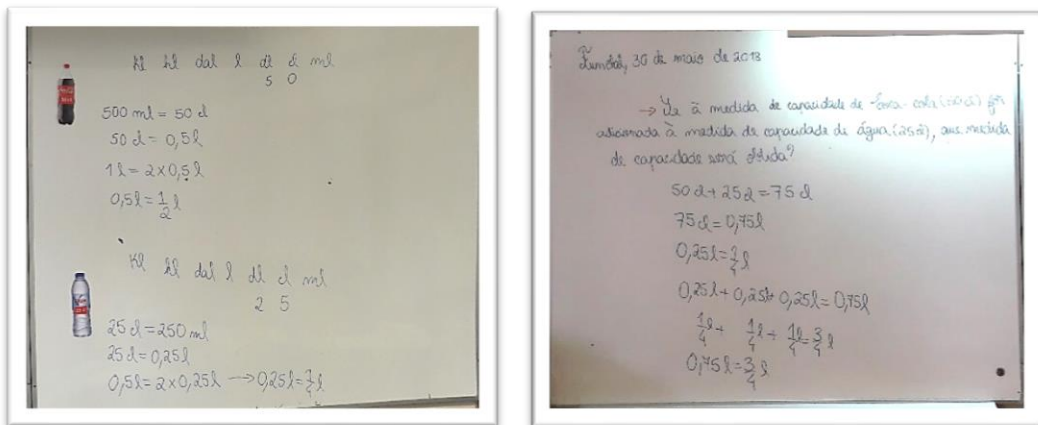 kl hl dal l dl cl ml
5 0
500 ml = 50 cl
50 cl = 0,5 l
1 l = 2 x 0,5 l
0,5 l = 1/2 l
kl hl dal l dl cl ml
2 5
25 cl = 250 ml
25 cl = 0,25 l
0,5 l = 2 x 0,25 l → 0,25 l = 1/4 l
Funchal, 30 de maio de 2013
→ Se à medida de capacidade de Coca-cola (50 cl) for
adicionada à medida de capacidade de água (25 cl), que medida
de capacidade será obtida?
50 cl + 25 cl = 75 cl
75 cl = 0,75 l
0,25 l = 1/4 l
0,25 l + 0,25 l + 0,25 l = 0,75 l
1/4 l + 1/4 l + 1/4 l = 3/4 l
0,75 l = 3/4 l